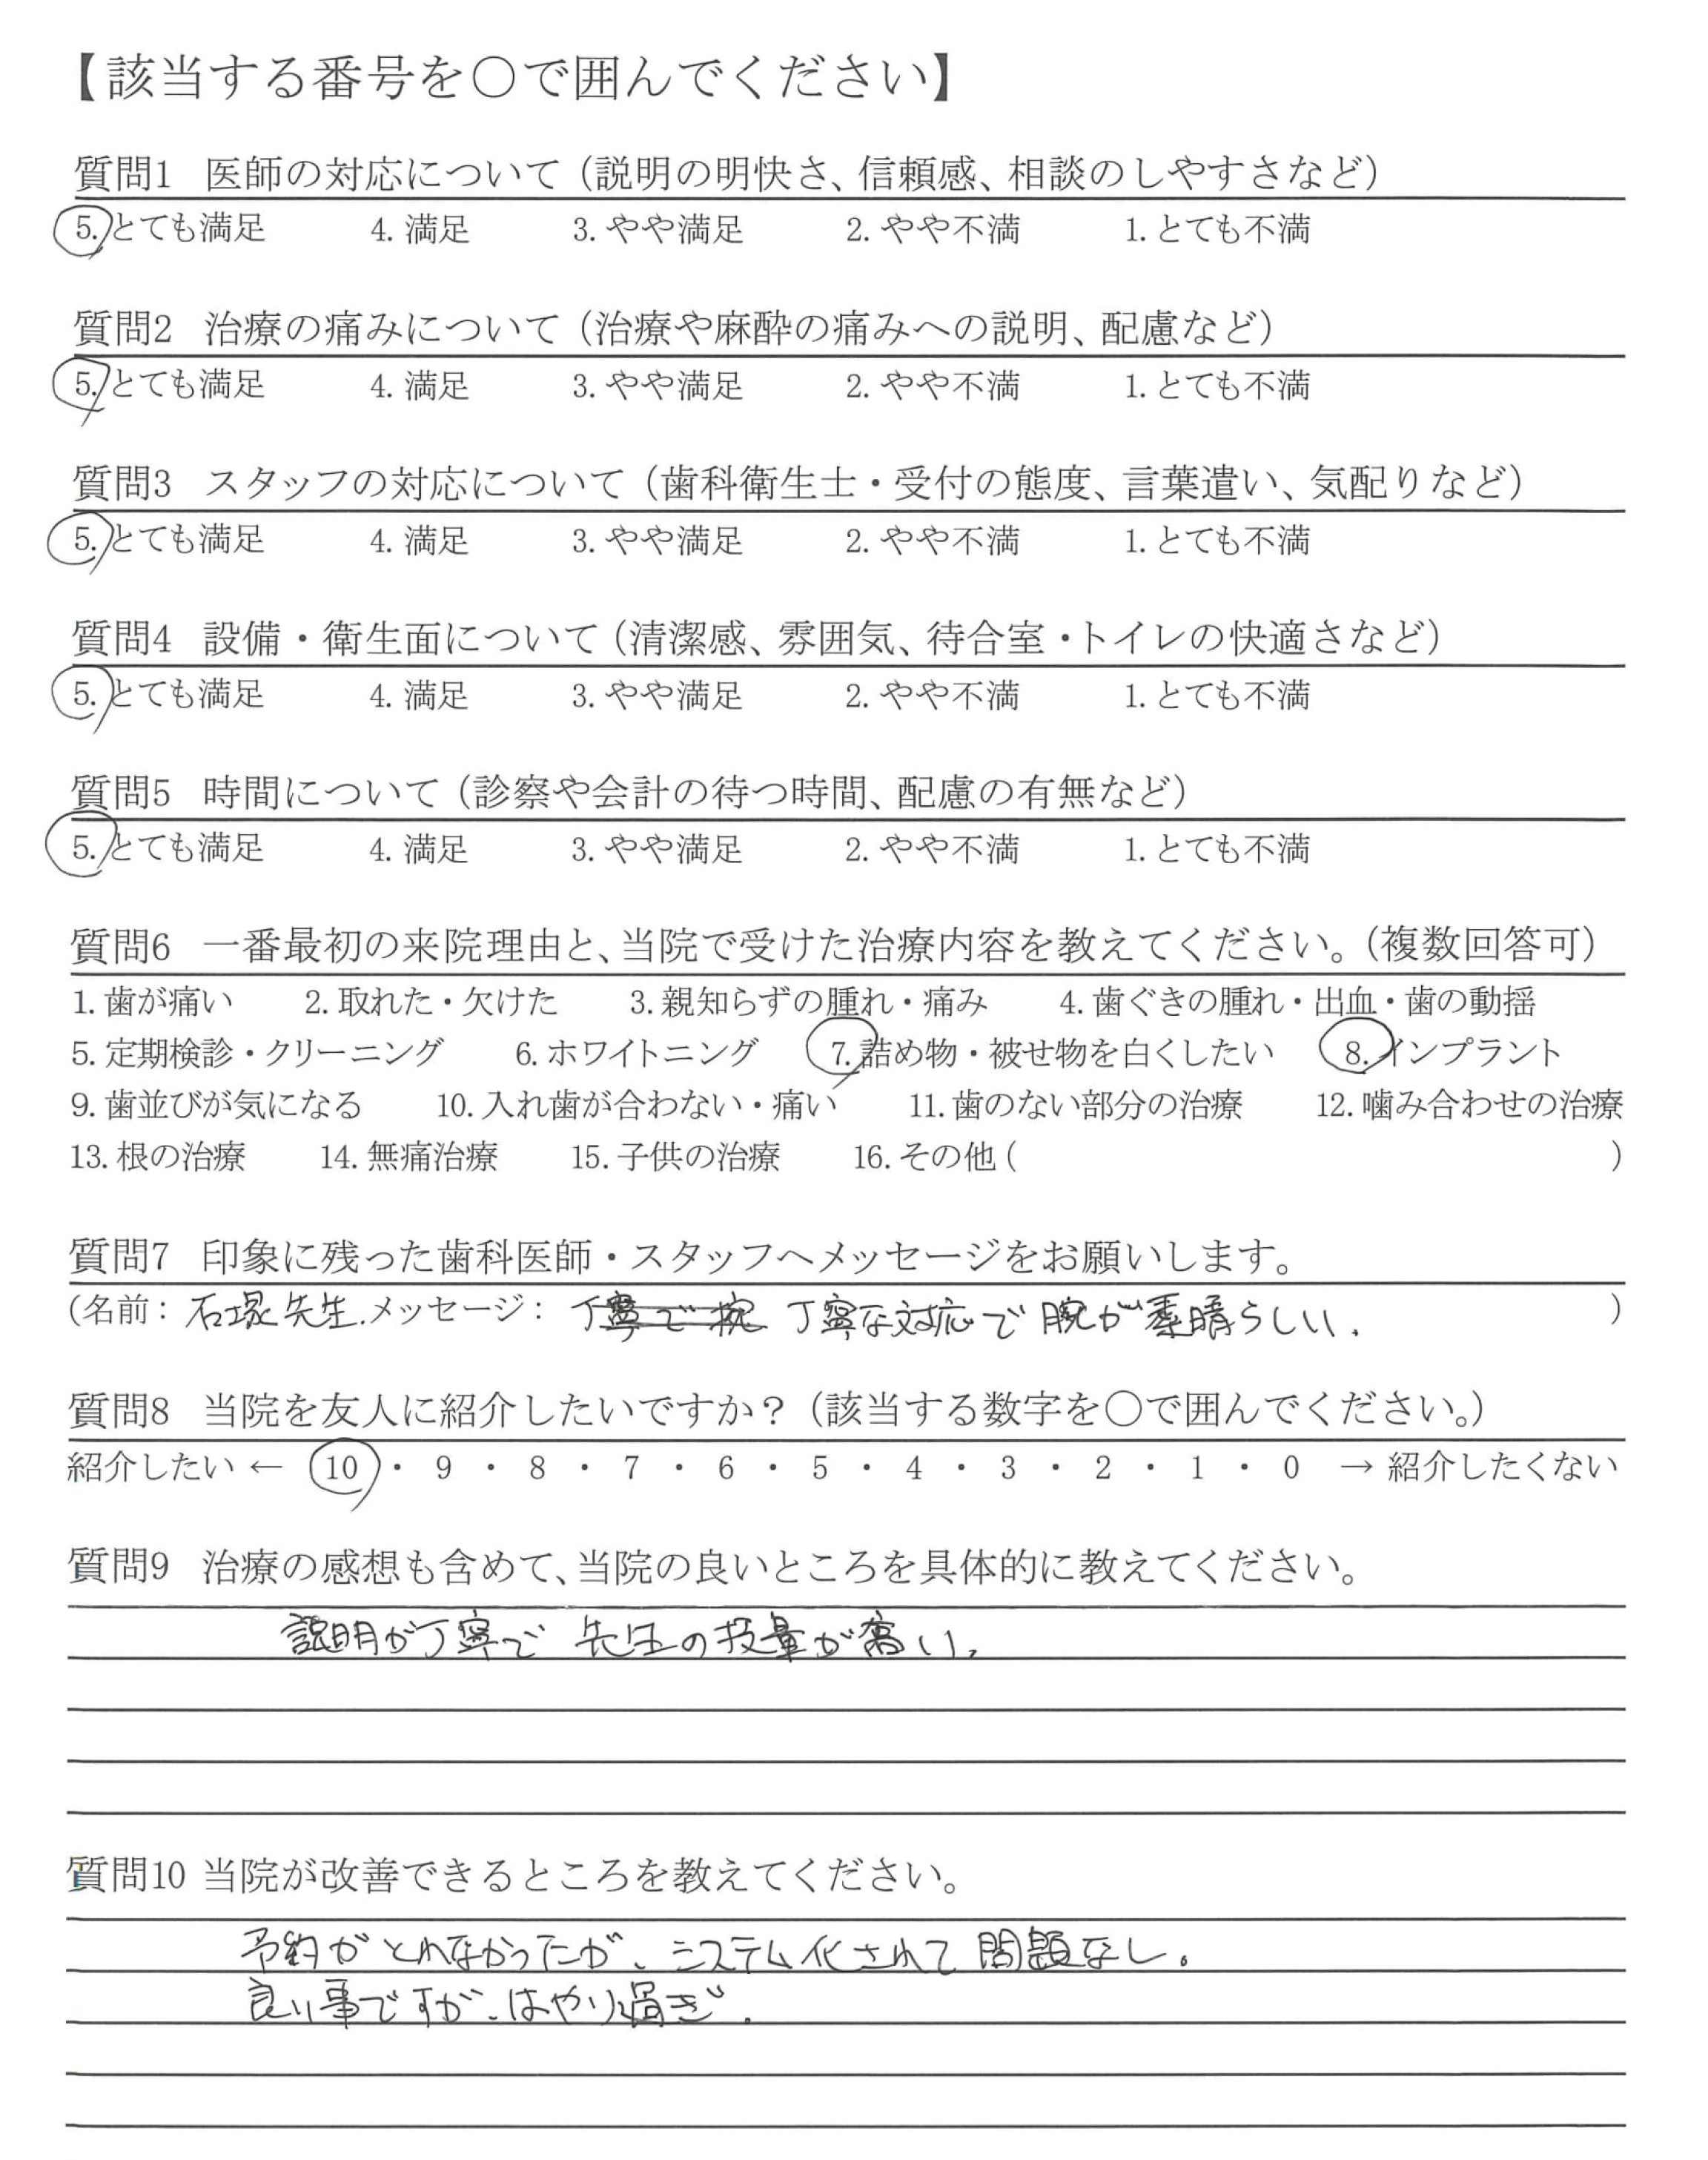 【該当する番号を○で囲んでください】
質問1 医師の対応について（説明の明快さ、信頼感、相談のしやすさなど）
5. とても満足 4. 満足 3. やや満足 2. やや不満 1. とても不満
質問2 治療の痛みについて（治療や麻酔の痛みへの説明、配慮など）
5. とても満足 4. 満足 3. やや満足 2. やや不満 1. とても不満
質問3 スタッフの対応について（歯科衛生士・受付の態度、言葉遣い、気配りなど）
5. とても満足 4. 満足 3. やや満足 2. やや不満 1. とても不満
質問4 設備・衛生面について（清潔感、雰囲気、待合室・トイレの快適さなど）
5. とても満足 4. 満足 3. やや満足 2. やや不満 1. とても不満
質問5 時間について（診察や会計の待つ時間、配慮の有無など）
5. とても満足 4. 満足 3. やや満足 2. やや不満 1. とても不満
質問6 一番最初の来院理由と、当院で受けた治療内容を教えてください。（複数回答可）
1. 歯が痛い 2. 取れた・欠けた 3. 親知らずの腫れ・痛み 4. 歯ぐきの腫れ・出血・歯の動揺
5. 定期検診・クリーニング 6. ホワイトニング 7. 詰め物・被せ物を白くしたい 8. インプラント
9. 歯並びが気になる 10. 入れ歯が合わない・痛い 11. 歯のない部分の治療 12. 噛み合わせの治療
13. 根の治療 14. 無痛治療 15. 子供の治療 16. その他（ ）
質問7 印象に残った歯科医師・スタッフへメッセージをお願いします。
（名前：石塚先生.メッセージ： 丁寧で 丁寧な対応で腕が素晴らしい. ）
質問8 当院を友人に紹介したいですか？（該当する数字を○で囲んでください。）
紹介したい ← 10 ・ 9 ・ 8 ・ 7 ・ 6 ・ 5 ・ 4 ・ 3 ・ 2 ・ 1 ・ 0 → 紹介したくない
質問9 治療の感想も含めて、当院の良いところを具体的に教えてください。
説明が丁寧で 先生の技量が高い.
質問10 当院が改善できるところを教えてください。
予約がとれなかったが、システム化されて問題なし。
良い事ですが、はやり過ぎ.